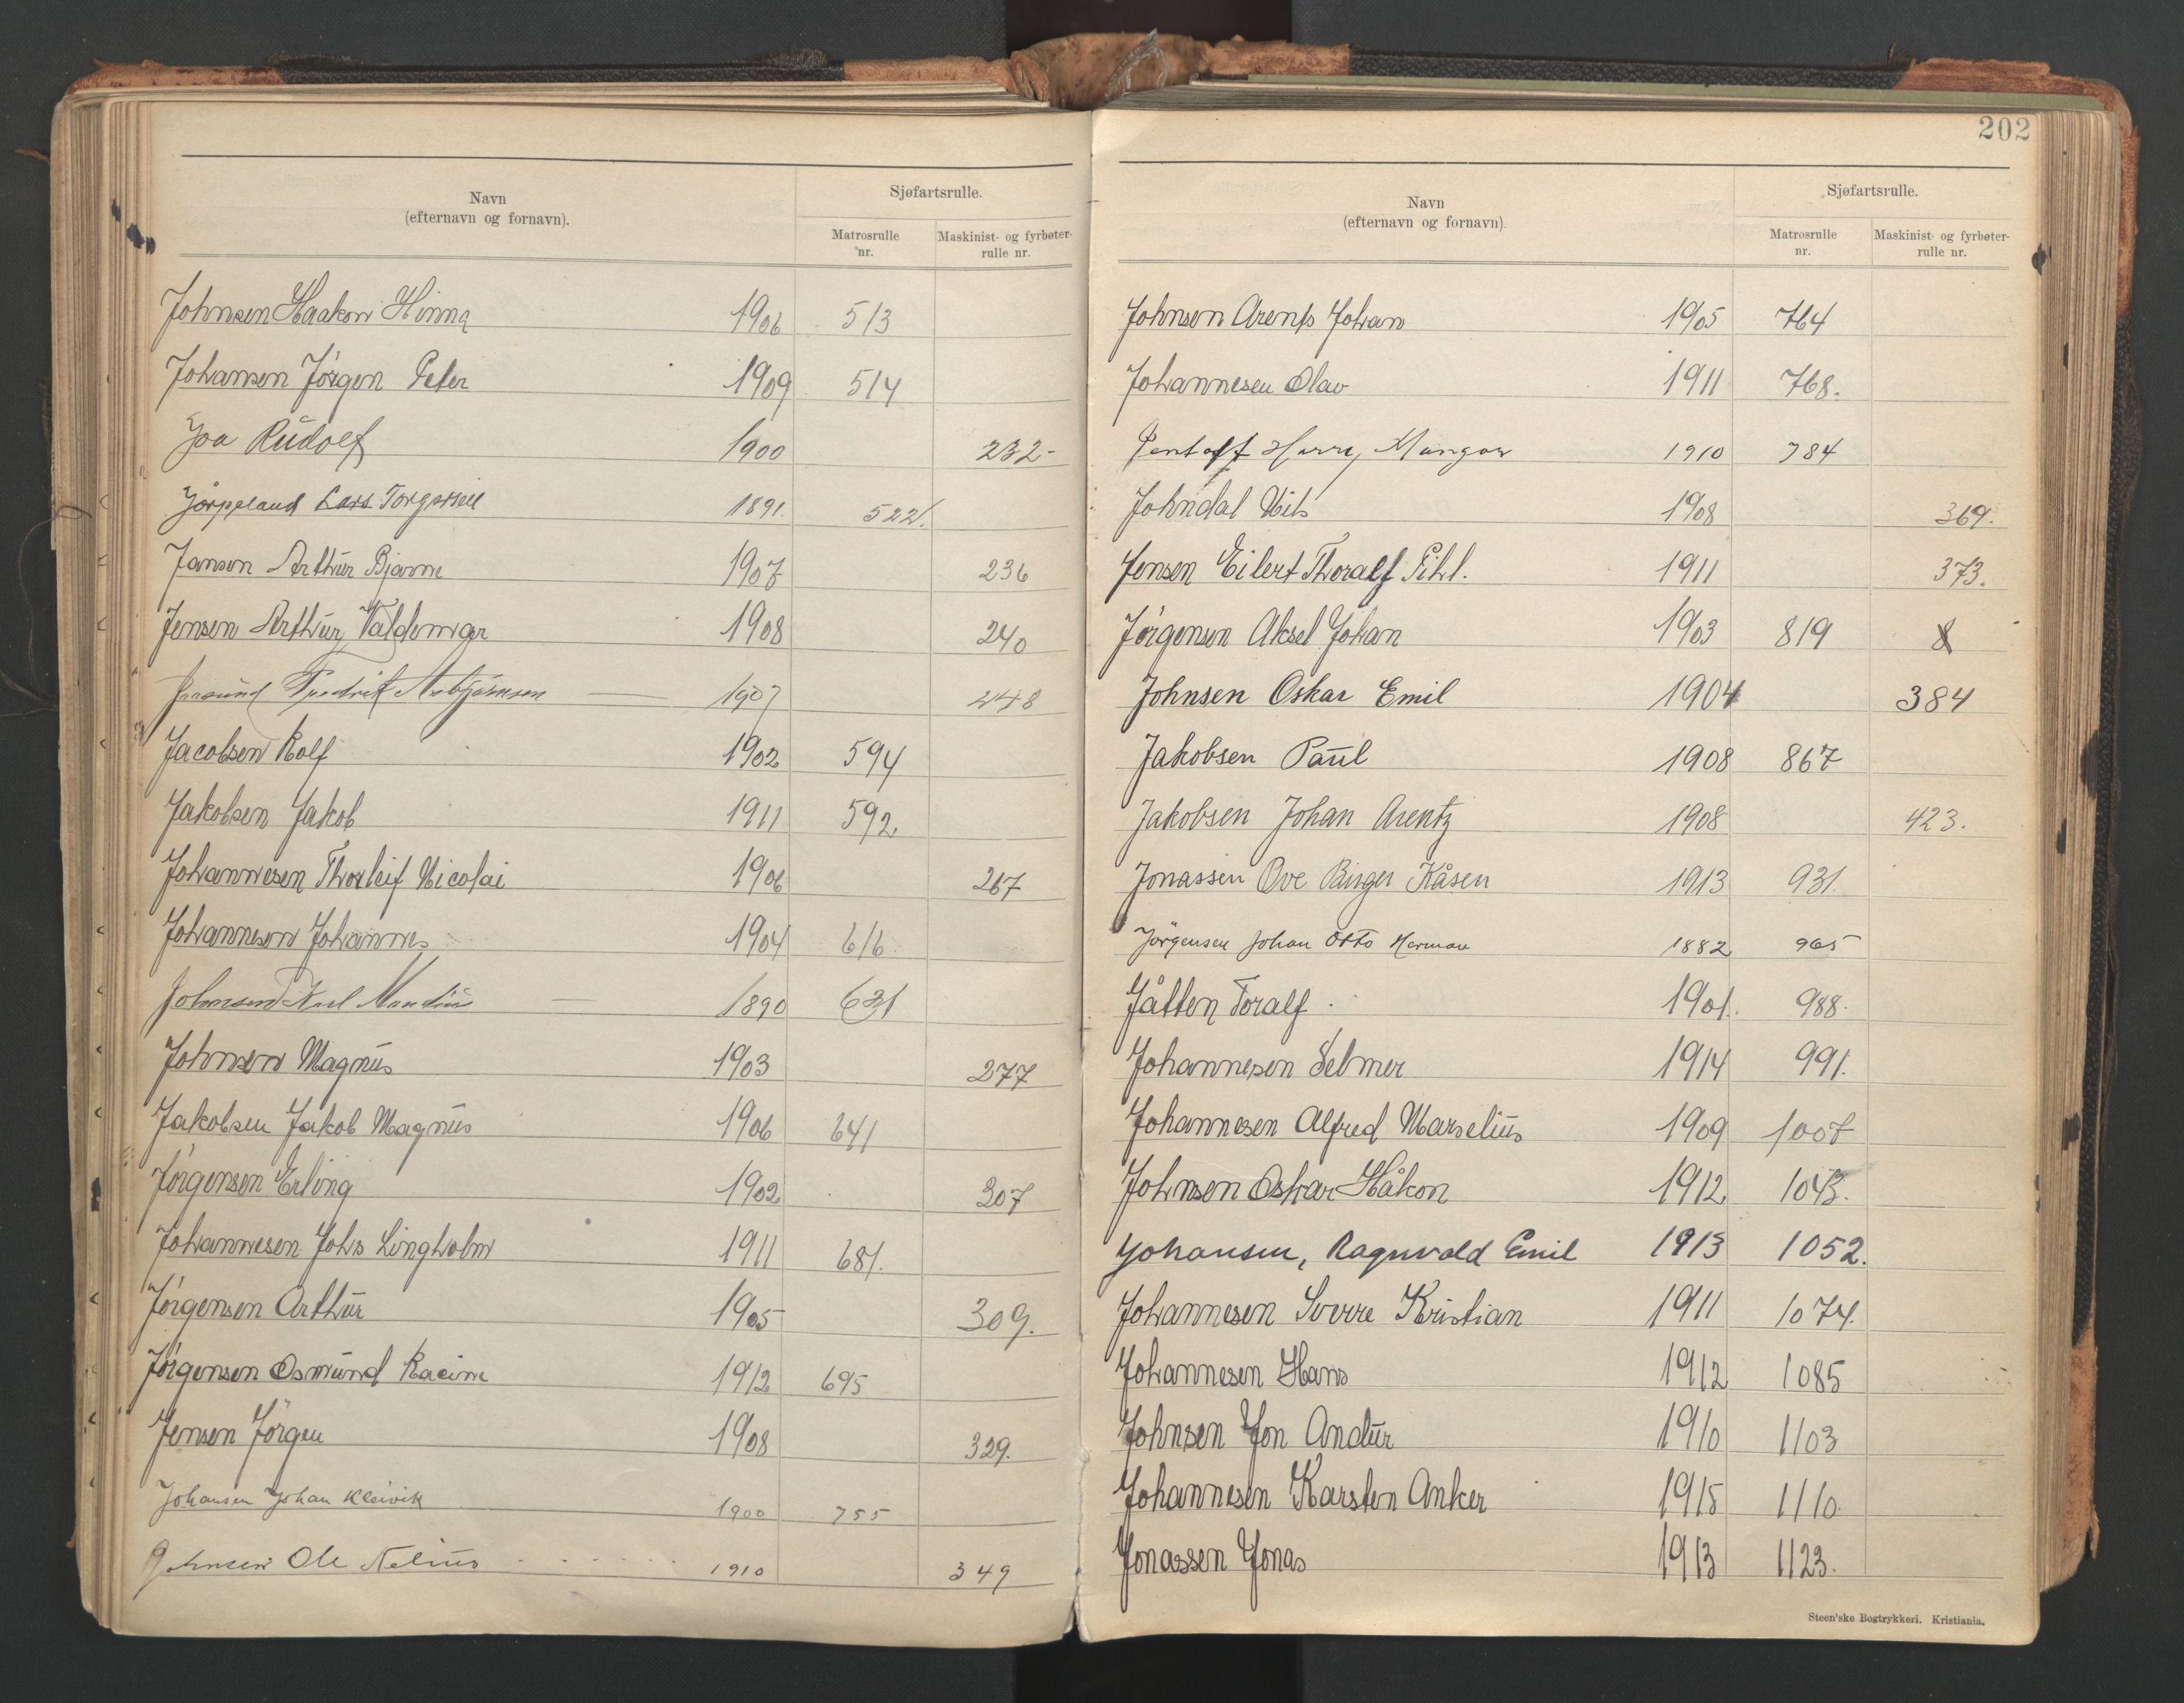 Navn
(efternavn og fornavn).
Sjøfartsrulle.
Matrosrulle
nr.
Maskinist- og fyrbøter-
rulle nr.
Johnsen Haakon Hinna 1906 513
Johansen Jörgen Peter 1909 514
Joa Rudolf 1900 232-
Jörpeland Lars Torgersen 1891. 522.
Jansen Arthur Bjarne 1907 236
Jensen Arthur Valdemar 1908 240
Fredrik Asbjörnsen 1907 248
Jacobsen Rolf 1902 594
Jakobsen Jakob 1911 592
Johannesen Thorleif Nicolai 1906 267
Johannesen Johannes 1904 616
Johnsen Karl 1890 631
Johnsen Magnus 1903 277
Jakobsen Jakob Magnus 1906 641
Jörgensen Erling 1902 307
Johannesen Johs Lingholm 1911 681.
Jörgensen Arthur 1905 309.
Jörgensen Osmund Racine 1912 695
Jensen Jörgen 1908 329.
Johansen Johan Kleivik 1900 755
Johnsen Ole Nelius 1910 349
202
Navn
(efternavn og fornavn).
Sjøfartsrulle.
Matrosrulle
nr.
Maskinist- og fyrbøter-
rulle nr.
Johnsen Arents Johan 1905 764
Johannesen Olav 1911 768.
Jentoft Harry Mangor 1910 784
Johndal Nils 1908 369.
Jensen Eilert Thoralf Pihl. 1911 373.
Jörgensen Aksel Johan 1903 819
Johnsen Oskar Emil 1904 384
Jakobsen Paul 1908 867
Jakobsen Johan Arentz 1908 423.
Jonassen Ove Birger Kåsen 1913 931.
Jörgensen Johan Otto Herman 1882 965
Jåtten Toralf. 1901. 988.
Johannesen Selmer 1914 991.
Johannesen Alfred Marselius 1909 1007
Johnsen Oskar Håkon 1912 1043.
Johansen, Ragnvald Emil 1913 1052.
Johannesen Sverre Kristian 1911 1074.
Johannesen Hans 1912 1085
Johnsen Jon Andur 1910 1103
Johannesen Karsten Anker 1915 1110.
Jonassen Jonas 1913 1123.
Steen'ske Bogtrykkeri. Kristiania.